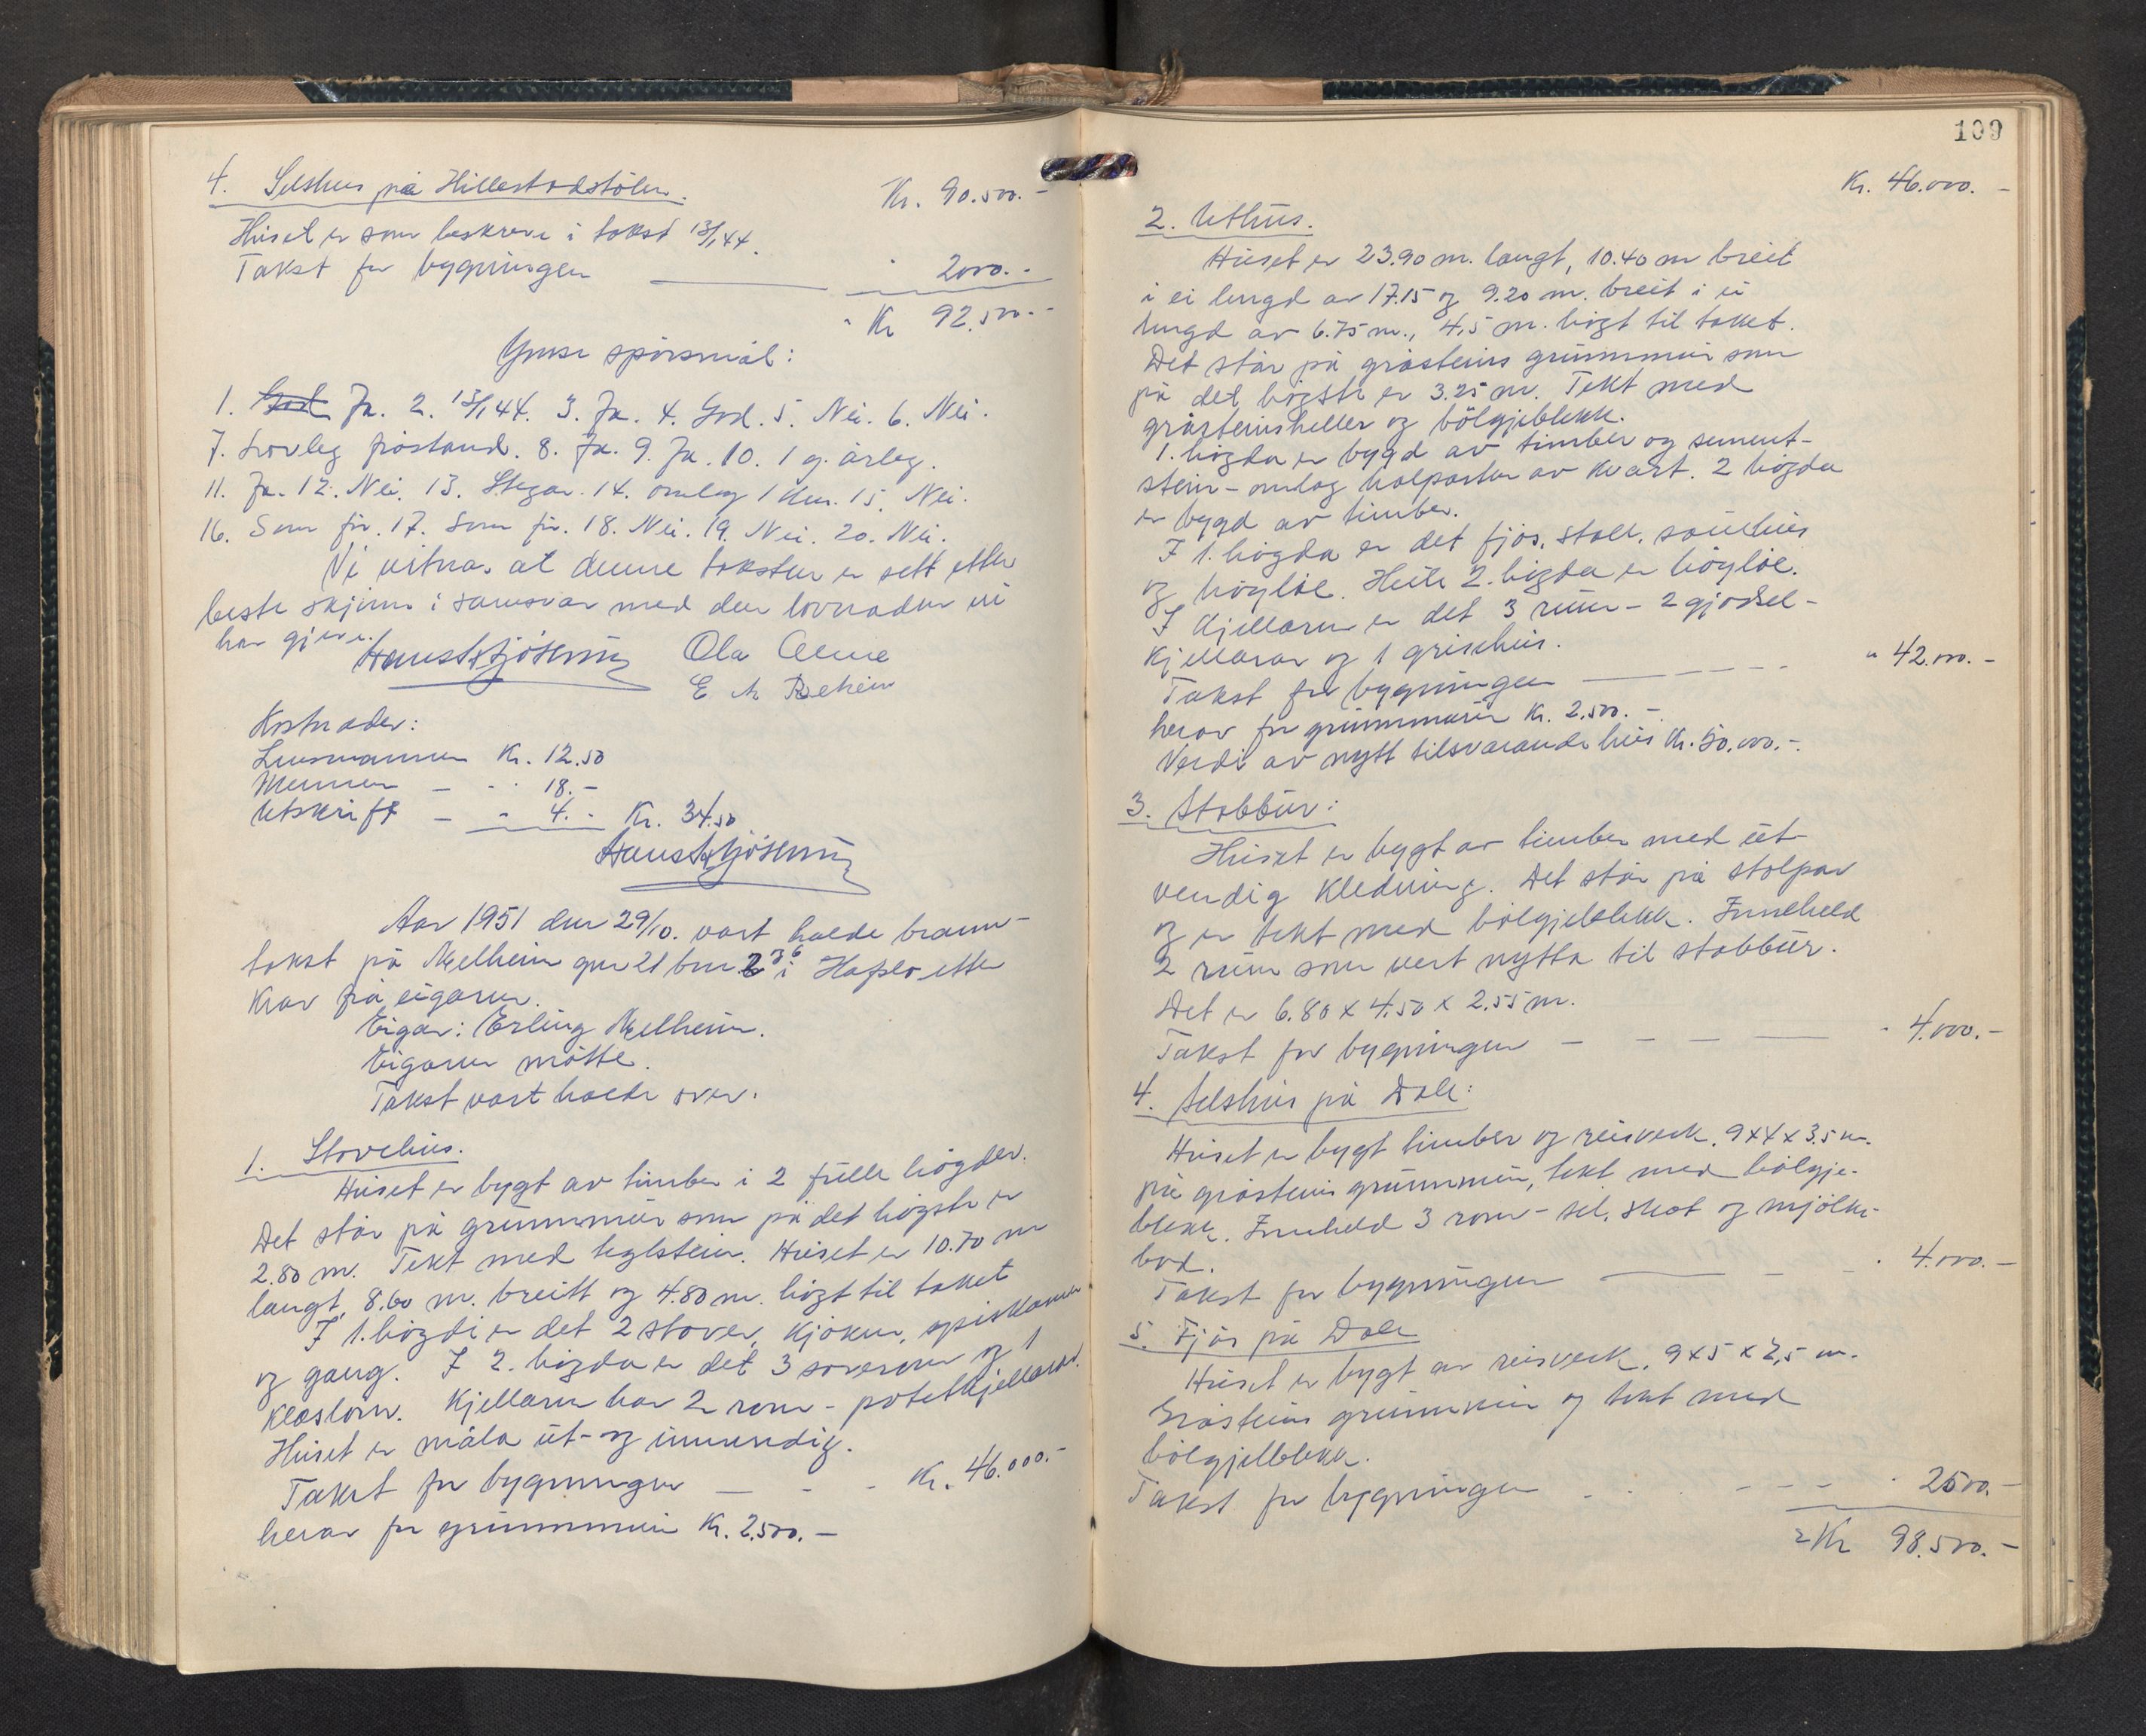 4. Selshus på Hillestadstölen.
Kr. 90.500.-
Huset er som beskreve i takst 13/1 44.
Takst for bygningen 2000.-
Kr 92.500.-
Ymse spörsmål:
1. Ja. 2. 13/1 44. 3. Ja. 4. God. 5. Nei. 6. Nei.
7. Lovleg fråstand. 8. Ja. 9. Ja. 10. 1 g. årleg.
11. Ja. 12. Nei. 13. Stegar. 14. omlag 1 km. 15. Nei.
16. Som för. 17. Som för. 18. Nei. 19. Nei. 20. Nei.
Vi vitnar at denne taksten er sett etter
beste skjönn i samsvar med den lovnaden vi
har gjeve.
Ola Alme
Kostnader:
Lensmannen Kr. 12.50
Mennene - " 18.-
Utskrift - " 4.- Kr. 34.50
Aar 1951 den 29/10. vart halde brann-
takst på Melheim gnr 21 bnr 36 i Hafslo etter
krav frå eigaren.
Eigar: Erling Melheim.
Eigaren mötte.
Takst vart halde over:
1. Stovehus.
Huset er bygt av timber i 2 fulle högder.
Det står på grunnmur som på det högste er
2.80 m. Tekt med teglstein. Huset er 10.70 m
langt, 8.60 m. breitt og 4.80 m. högt til taket
I 1. högdi er det 2 stover, kjöken, spiskammer
og gang. I 2. högda er det 3 soverom og 1
kleslöin. Kjellaren har 2 rom - potetkjellarar.
Huset er måla ut- og innvendig.
Takst for bygningen - - - Kr. 46.000.-
herav for grunnmuren Kr. 2.500.-
109
Kr. 46.000.-
2. Uthus.
Huset er 23.90 m. langt, 10.40 m breit
i ei lengd av 17.15 og 9.20 m. breit i ei
lengd av 6.75 m., 4,5 m. högt til taket.
Det står på gråsteins grunnmur som
på det högste er 3.25 m. Tekt med
gråsteinsheller og bölgjeblekk.
1. högda er bygd av timber og sement-
stein - omlag halparten av kvart. 2 högda
er bygd av timber.
I 1. högda er det fjös, stall, sauehus
og höylöe. Heile 2. högda er höylöe.
I kjellaren er det 3 rum - 2 gjödsel-
kjellarar og 1 grisehus.
Takst for bygningen - - - " 42.000.-
herav for grunnmuren Kr. 2.500.-
Verdi av nytt tilsvarande hus Kr. 50.000.-.
3. Stabbur:
Huset er bygt av timber med ut-
vendig kledning. Det står på stolpar
og er tekt med bölgjeblekk. Inneheld
2 rum som vert nytta til stabbur.
Det er 6.80 x 4.50 x 2.55 m.
Takst for bygningen - - - - " 4.000.-
4. Selshus på Dale:
Huset er bygt timber og reisverk. 9x4x3.5 m.
på gråsteins grunnmur, tekt med bölgje-
blekk. Inneheld 3 rom - sel, skot og mjölke-
bod.
Takst for bygningen - - " 4.000.-
5. Fjös på Dale
Huset er bygt av reisverk. 9x5x2,5 m.
Gråsteins grunnmur og tekt med
bölgjeblekk.
Takst for bygningen - - - - " 2500.-
= Kr 98.500.-